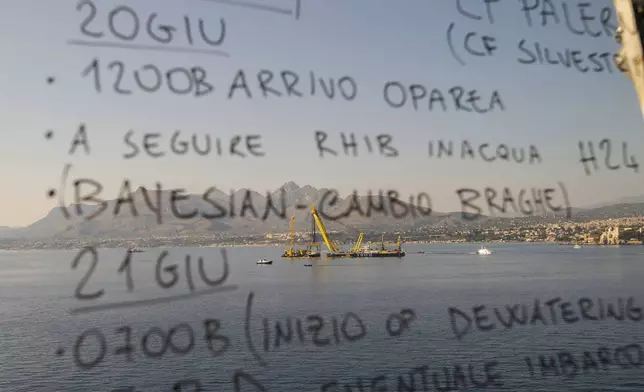 CF PALER
20GIU
(CF SILVESTR
· 1200B ARRIVO OPAREA
· A SEGUIRE RHIB INACQUA H24
· (BAYESIAN-CAMBIO BRAGHE)
21GIU
· 0700B (INIZIO OP DEWATERING
EVENTUALE IMBARCO